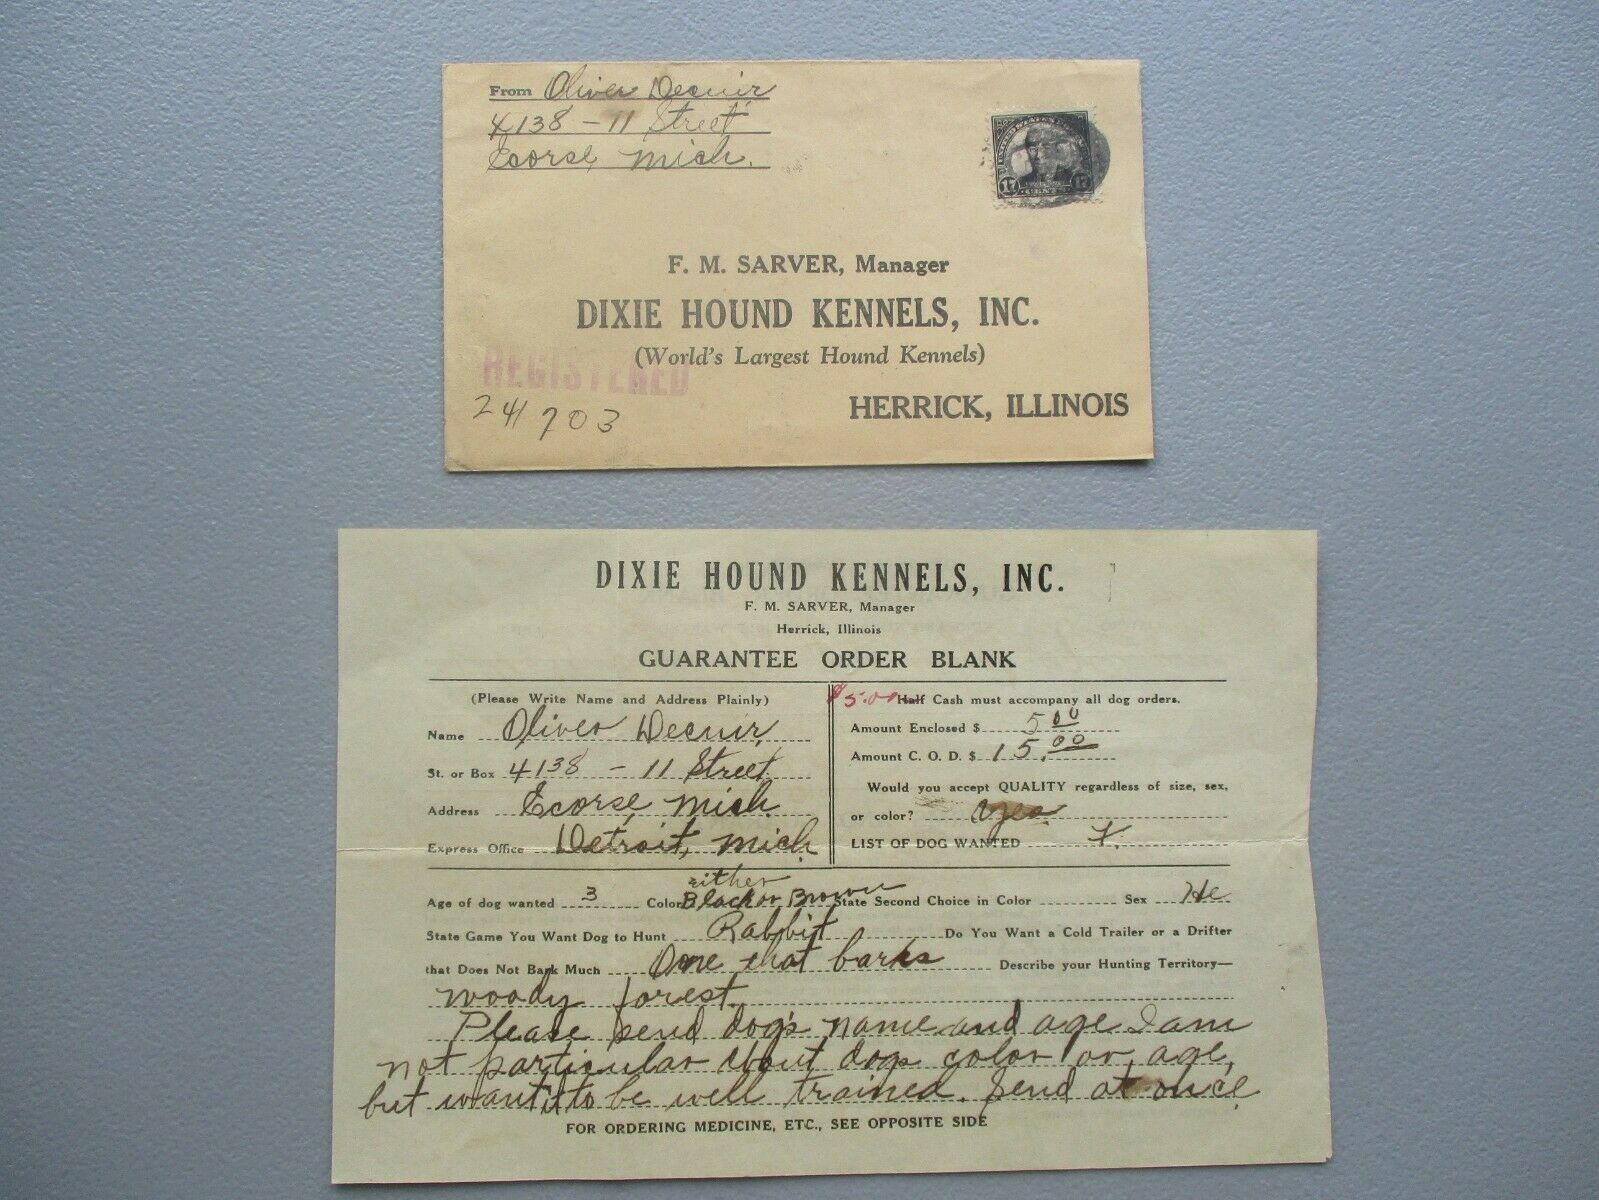 From Oliver Decuir
4138 - 11 Street
Ecorse, Mich.
UNITED STATES
17 17
CENTS
F. M. SARVER, Manager
DIXIE HOUND KENNELS, INC.
(World's Largest Hound Kennels)
REGISTERED
HERRICK, ILLINOIS
241703
DIXIE HOUND KENNELS, INC.
F. M. SARVER, Manager
Herrick, Illinois
GUARANTEE ORDER BLANK
(Please Write Name and Address Plainly)
Name Oliver Decuir,
St. or Box 4138 - 11 Street
Address Ecorse, Mich.
Express Office Detroit, Mich.
$5.00 Half Cash must accompany all dog orders.
Amount Enclosed $ 5.00
Amount C. O. D. $ 15.00
Would you accept QUALITY regardless of size, sex,
or color? yes.
LIST OF DOG WANTED
either
Age of dog wanted 3 Color Black or Brown State Second Choice in Color Sex He
State Game You Want Dog to Hunt Rabbit Do You Want a Cold Trailer or a Drifter
that Does Not Bark Much One that barks Describe your Hunting Territory—
woody forest.
Please send dog's name and age I am
not particular about dogs color or age,
but want it to be well trained. Send at once
FOR ORDERING MEDICINE, ETC., SEE OPPOSITE SIDE